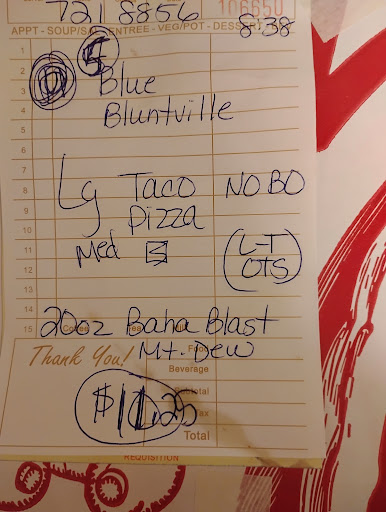 721 8856
106650
8:38
APPT - SOUP/SAL - ENTREE - VEG/POT - DESSERT
1
2
3 Blue
4
5 Bluntville
6
7
8 Lg Taco NO BO
9
10 Pizza
11 Med (L-T
12 OTS)
13
14
15 20oz Baha Blast
Thank You! Mt. Dew
Food
Beverage
Subtotal
$11.25
Tax
Total
REQUISITION